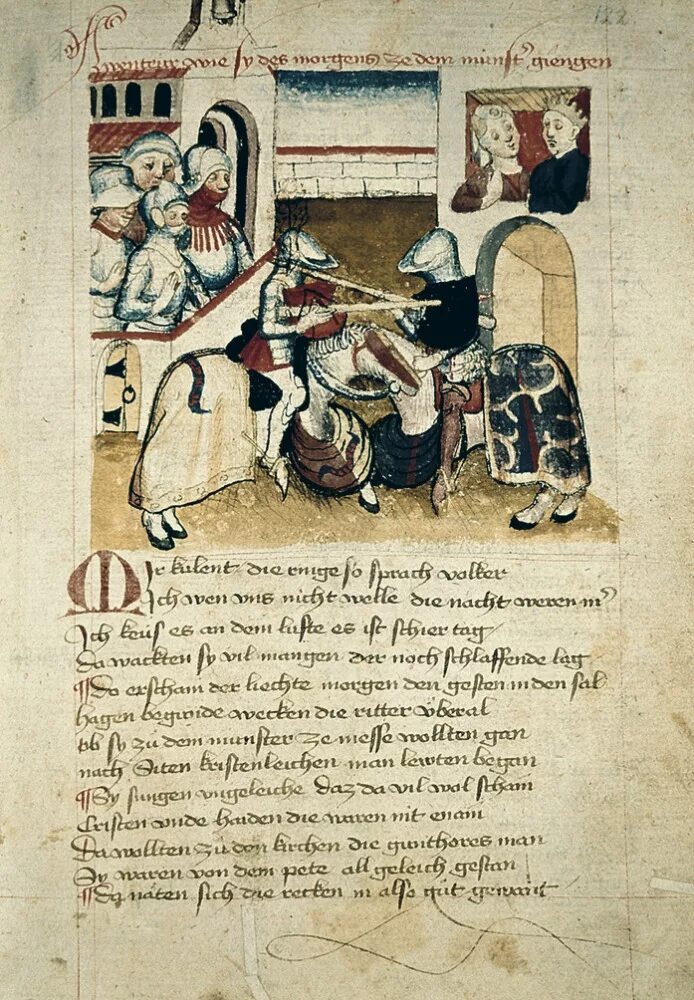 122
Awenteur wie sy des morgens ze dem münstˀ giengen
Mir külent die ringe so sprach volker
Ich wen vns nicht welle die nacht weren mˀ
Ich keüs es an dem lufte es ist schier tag
Da wackten sy vil mangen der noch schlaffende lag
¶ Do erschain der liechte morgen den gesten in den sal
hagen begunde wecken die ritter vberal
ob sy zü dem munster ze messe wollten gan
nach Siten kristenleichen man lewten began
¶ Sy sungen vngeleiche daz da vil wol schain
Cristen vnde haiden die waren nit enain
Da wollten zü den kirchen die gunthores man
Sy waren von dem pete all geleich gestan
¶ Da naten sich die recken in also güt gewant